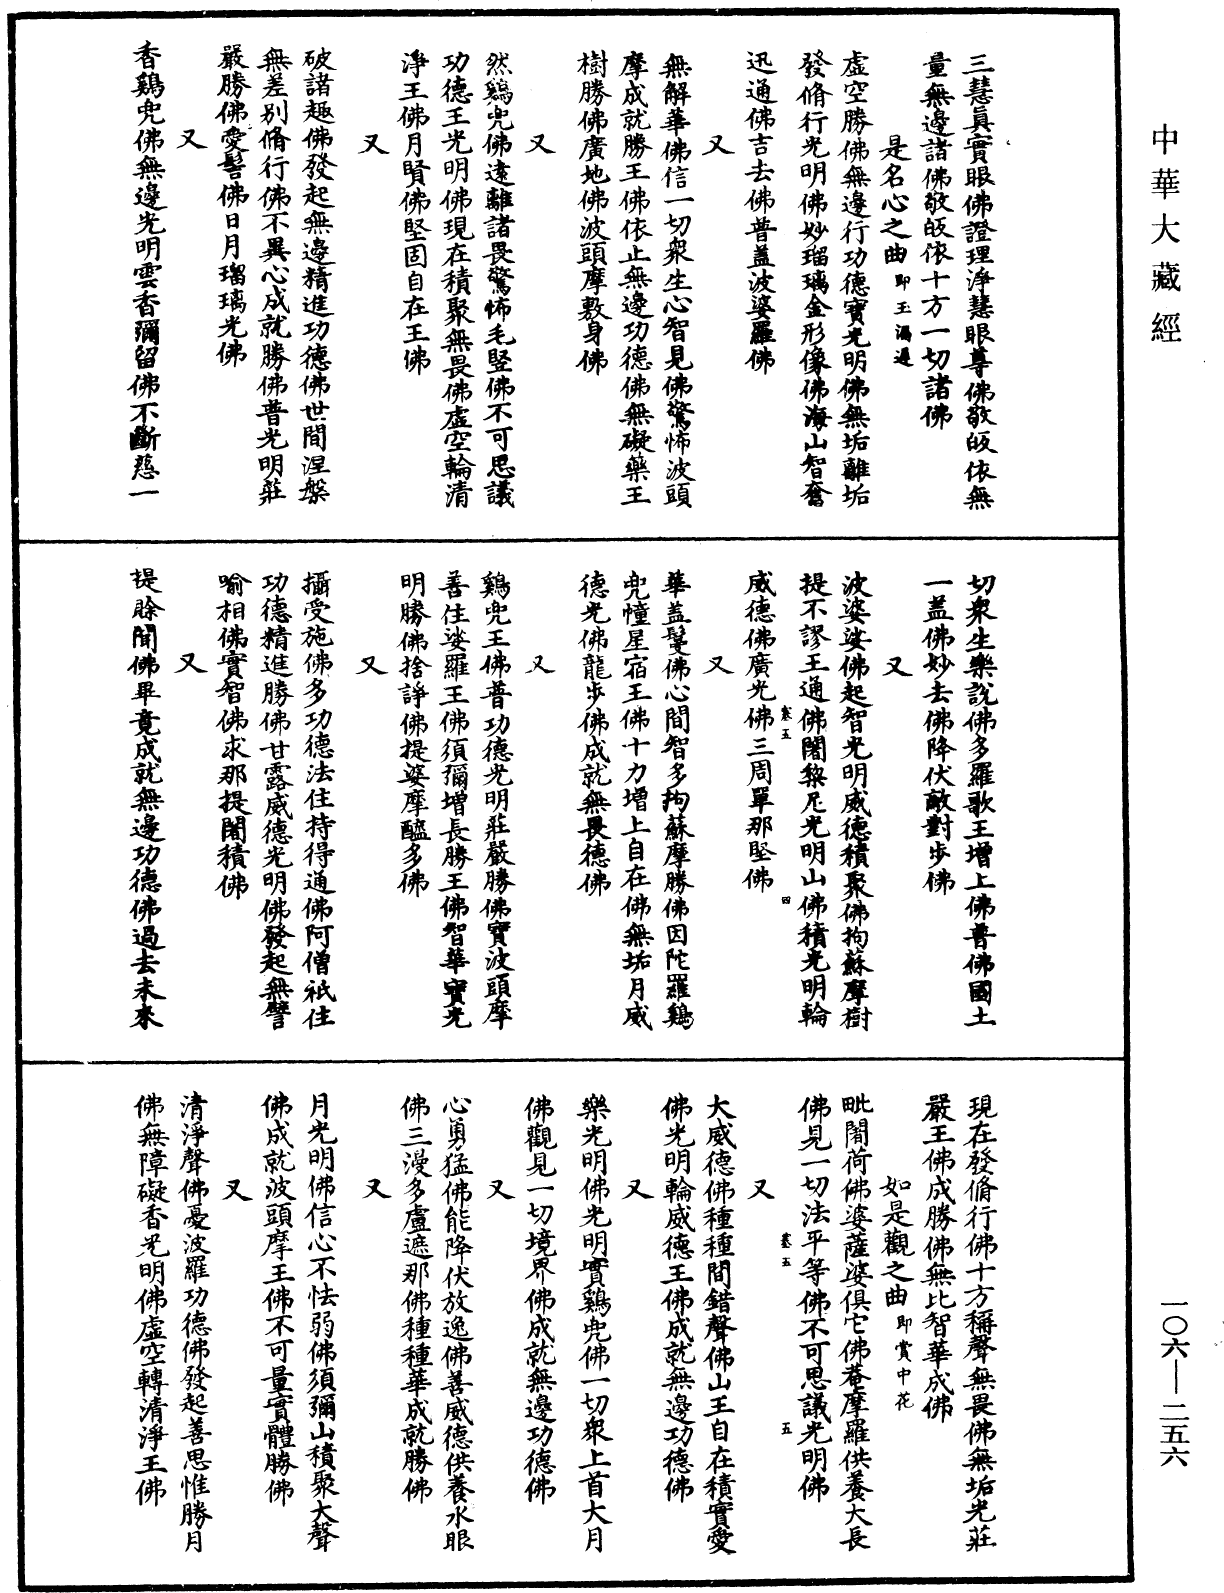 中華大藏經
三慧眞實眼佛證理淨慧眼尊佛敬皈依無
量無邊諸佛敬皈依十方一切諸佛
是名心之曲即玉
虛空勝佛無邊行功德寶光明佛無垢離垢
發脩行光明佛妙瑠璃金形像佛海山智奮
迅通佛吉去佛普蓋波婆羅佛
又
無解華佛信一切衆生心智見佛驚怖波頭
摩成就勝王佛依止無邊功德佛無礙藥王
樹勝佛廣地佛波頭摩敷身佛
又
然鷄兜佛遠離諸畏驚怖毛竪佛不可思議
功德王光明佛現在積聚無畏佛虛空輪清
淨王佛月賢佛堅固自在王佛
又
破諸趣佛發起無邊精進功德佛世間涅槃
無差別脩行佛不異心成就勝佛普光明莊
嚴勝佛愛髻佛日月瑠璃光佛
又
香鷄兜佛無邊光明雲香彌留佛不斷慈一
切衆生樂說佛多羅歌王增上佛普佛國土
一盖佛妙去佛降伏敵對步佛
又
波婆娑佛起智光明威德積聚佛拘蘇摩樹
提不謬王通佛闍黎尼光明山佛積光明輪
威德佛廣光佛三周單那堅佛
又
華盖鬘佛心間智多拘蘇摩勝佛因陀羅鷄
兜幢星宿王佛十力增上自在佛無垢月威
德光佛龍步佛成就無畏德佛
又
鷄兜王佛普功德光明莊嚴勝佛寶波頭摩
善住娑羅王佛須彌增長勝王佛智華寶光
明勝佛捨諍佛提婆摩醯多佛
又
攝受施佛多功德法住持得通佛阿僧祇住
功德精進勝佛甘露威德光明佛發起無譬
喻相佛實智佛求那提闍積佛
又
提賖聞佛畢竟成就無邊功德佛過去未來
現在發脩行佛十方稱聲無畏佛無垢光莊
嚴王佛成勝佛無比智華成佛
如是觀之曲即賞中花
毗闍荷佛婆薩婆俱它佛菴摩羅供養大長
佛見一切法平等佛不可思議光明佛
又
大威德佛種種間錯聲佛山王自在積寶愛
佛光明輪威德王佛成就無邊功德佛
又
樂光明佛光明寶鷄兜佛一切衆上首大月
佛觀見一切境界佛成就無邊功德佛
又
心勇猛佛能降伏放逸佛善威德供養水眼
佛三漫多盧遮那佛種種華成就勝佛
又
月光明佛信心不怯弱佛須彌山積聚大聲
佛成就波頭摩王佛不可量實體勝佛
又
清淨聲佛憂波羅功德佛發起善思惟勝月
佛無障礙香光明佛虛空轉清淨王佛
一〇六—二五六